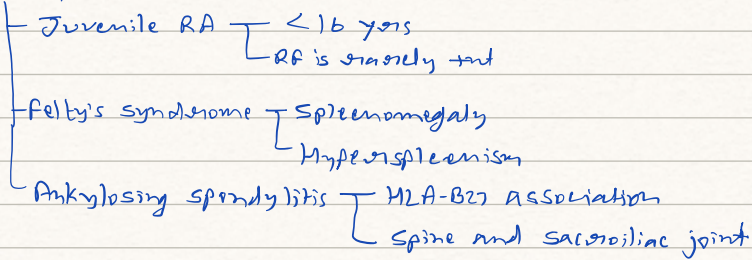 Juvenile RA < 16 yrs
RF is rarely +nt
Felty's syndrome Spleenomegaly
Hyperspleenism
Ankylosing spondylitis HLA-B27 association
spine and sacroiliac joint